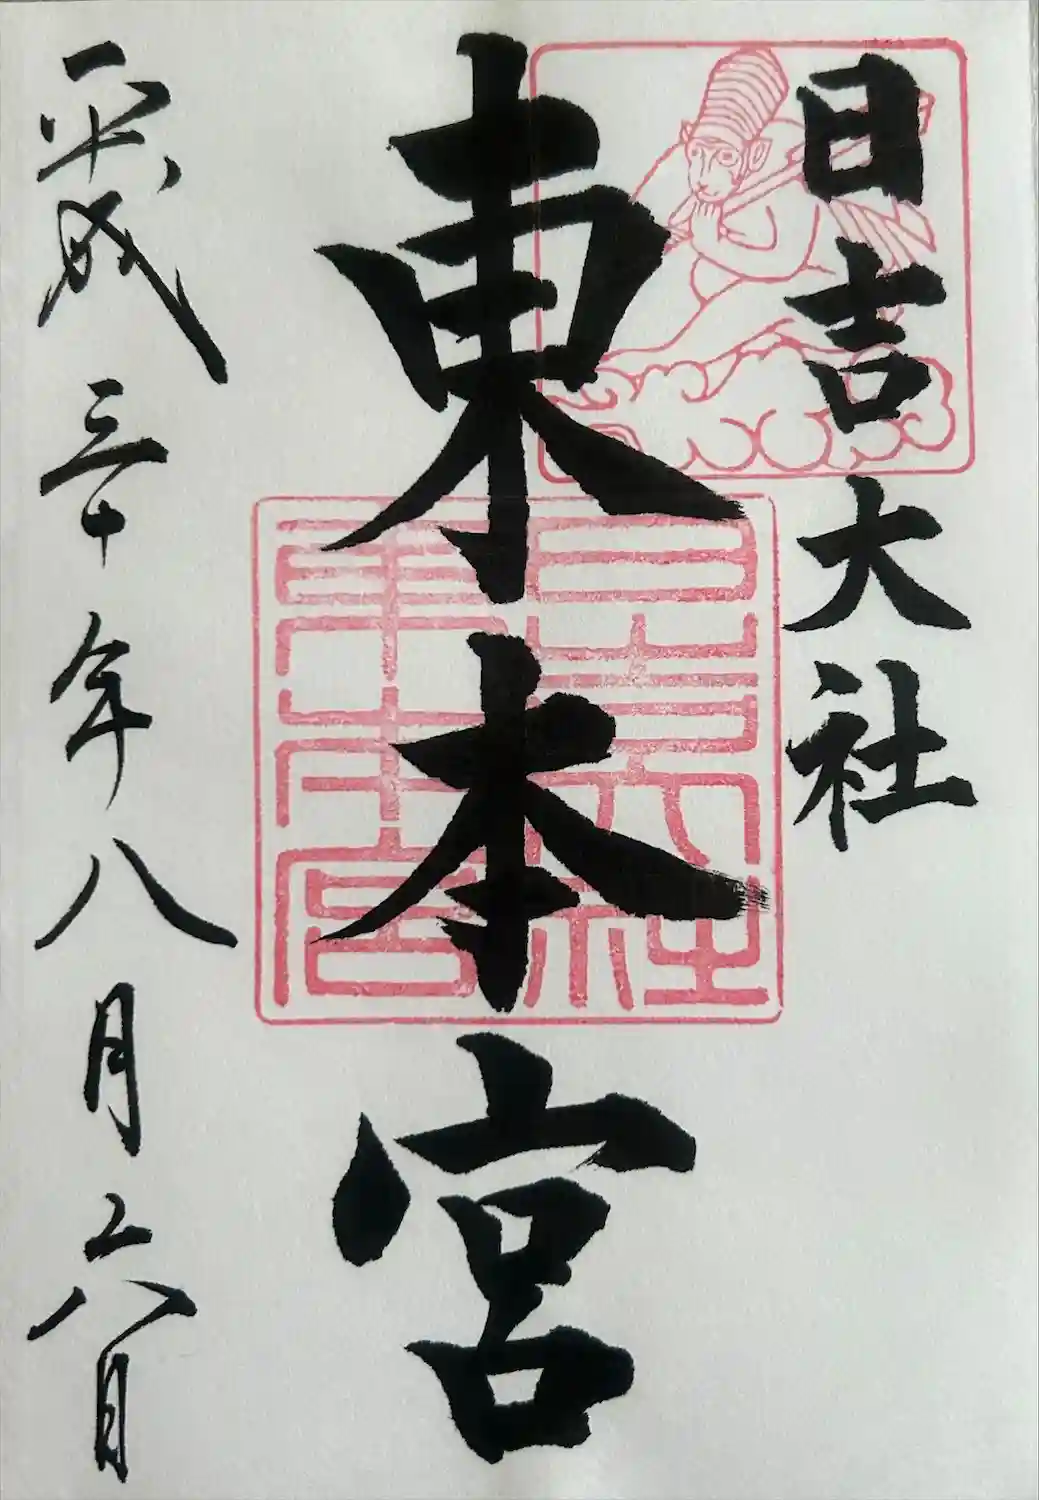 日吉大社
東本宮
平成三十年八月六日
日吉大社
東本宮